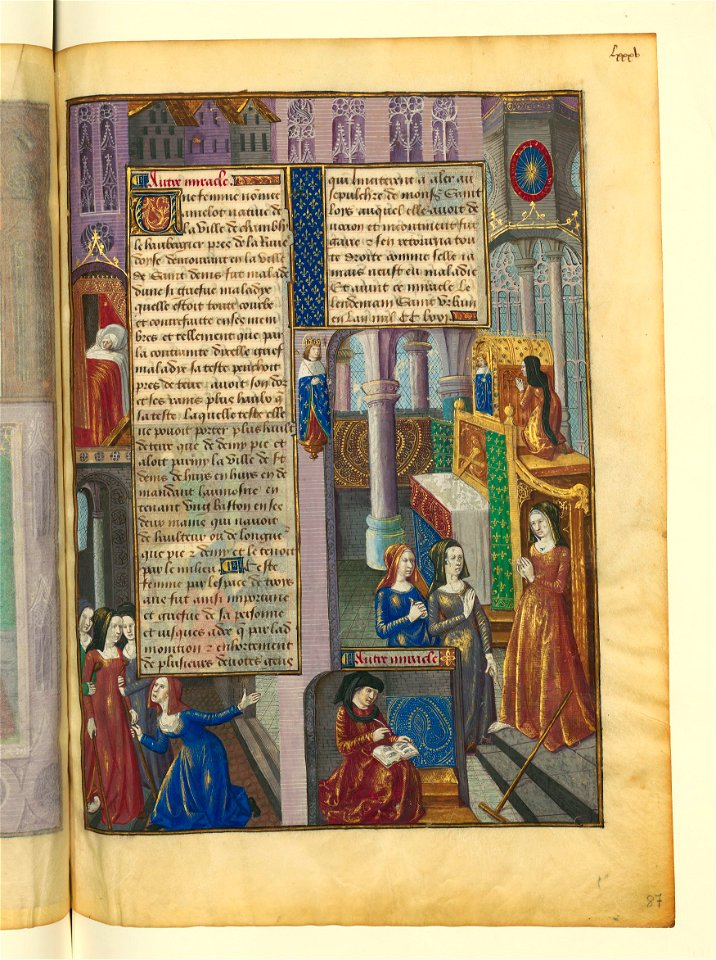 Lxxxv
Autre miracle
Une femme nõmee
amelot natiue de
la ville de chambly
le haubegier pres de la Riuie
doyse demourant en la ville
de Saint denis fut malade
dune si griefue maladye
quelle estoit toute courbe
et contrefaicte en ses mem
bres et tellement que par
la contrainte dicelle grief
maladye sa teste penchoit
pres de terre auoit son dos
et ses rains plus haulx q̃
sa teste Laquelle teste elle
ne pouoit porter plus hault
de terre que de demy pie et
aloit parmy la ville de st
denis de huys en huys en de
mandant laumosne en
tenant vng baston en ses
deux mains qui nauoit
de haulteur ou de longueur
que pie & demy et le tenoit
par le milieu Ceste
femme par lespace de troys
ans fut ainsi
et griefue de sa personne
et iusques a de q̃ par lad
monition & enhortement
de plusieurs deuotes gens
qui linciterent a aler au
sepulchre de monsr Saint
loys auquel elle auoit de
uocion et incontinent fut
garie & sen retourna tou
te droite comme selle ia
mais neust eu maladie
Et auint ce miracle Le
lendemain Saint Urbain
en Lan mil CC
Autre miracle
87